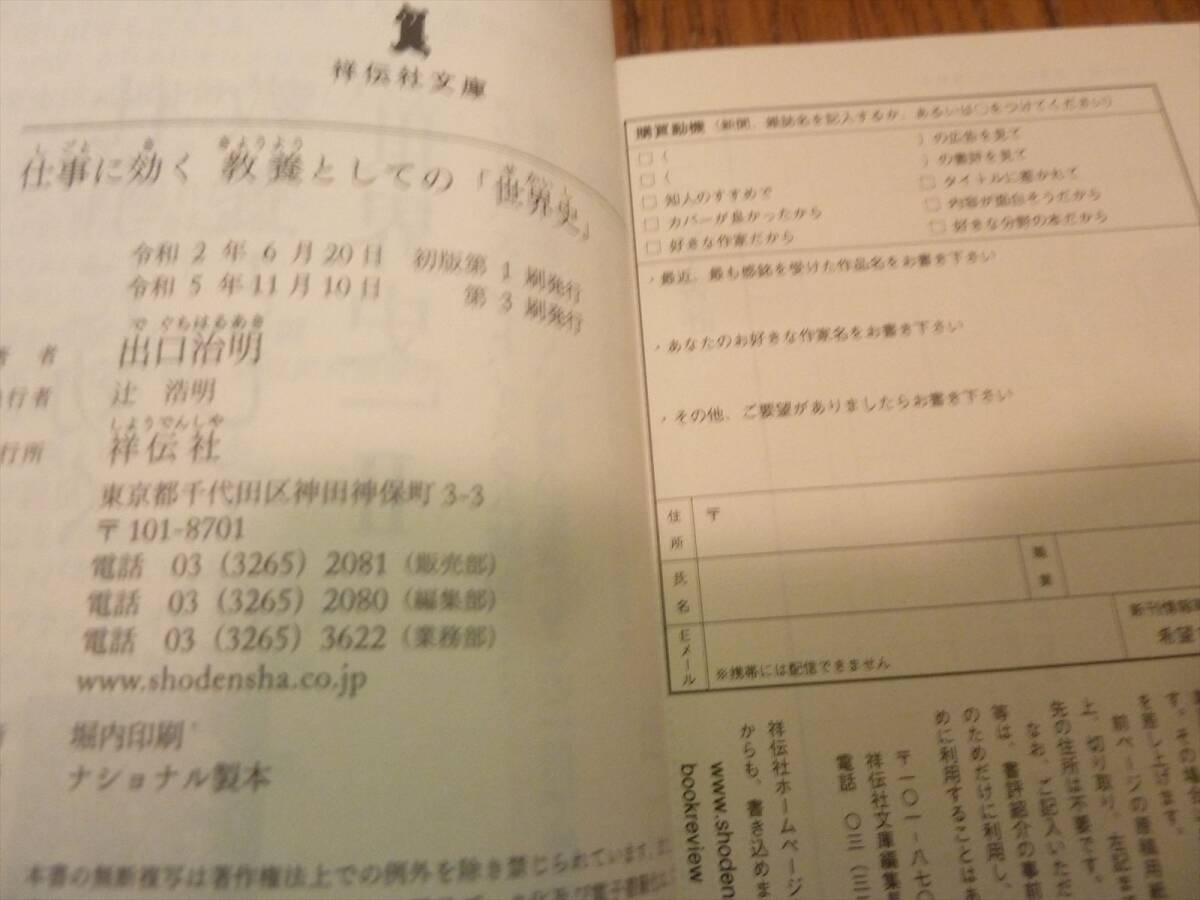 祥伝社文庫
仕事に効く 教養としての「世界史」
令和2年6月20日 初版第1刷発行
令和5年11月10日 第3刷発行
でぐちはるあき
者 出口治明
行者 辻 浩明
しようでんしや
行所 祥伝社
東京都千代田区神田神保町3-3
〒101-8701
電話 03(3265)2081(販売部)
電話 03(3265)2080(編集部)
電話 03(3265)3622(業務部)
www.shodensha.co.jp
堀内印刷
ナショナル製本
本書の無断複写は著作権法上での例外を除き禁じられています。
購買動機(新聞、雑誌名を記入するか、あるいは○をつけてください)
□( )の広告を見て
□( )の書評を見て
□ 知人のすすめで □ タイトルに惹かれて
□ カバーが良かったから □ 内容が面白そうだから
□ 好きな作家だから □ 好きな分野の本だから
・最近、最も感銘を受けた作品名をお書き下さい
・あなたのお好きな作家名をお書き下さい
・その他、ご要望がありましたらお書き下さい
住所 〒
氏名 職業
Eメール ※携帯には配信できません 新刊情報 希望
す。その場合
を差し上げます。
前ページの原稿用紙
上、切り取り、左記ま
先の住所は不要です。
なお、ご記入いただ
等は、書評紹介の事前
のためだけに利用し、
めに利用することはあ
〒一〇一-八七〇
祥伝社文庫編集
電話 〇三(三
祥伝社ホームページ
からも、書き込めま
www.shoden
bookreview